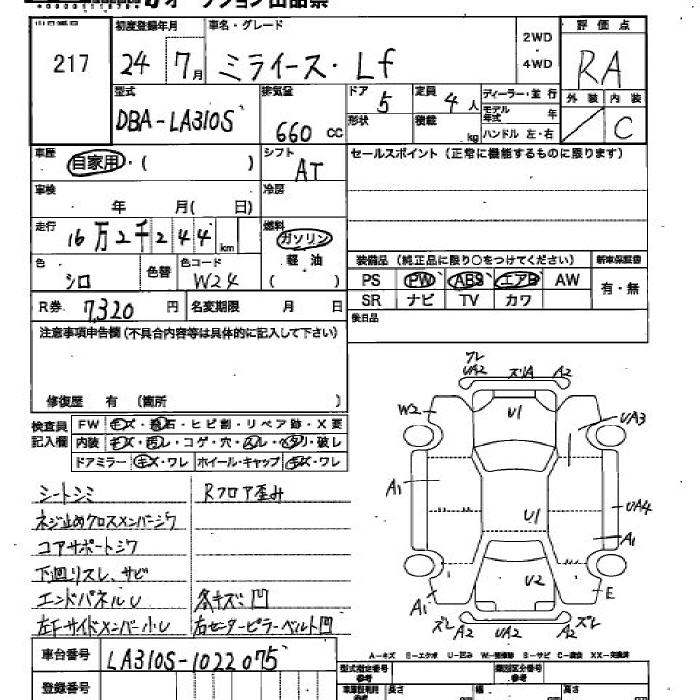 オークション出品票
出品番号 初度登録年月 車名・グレード 2WD・4WD 評価点
217 24 7月 ミライース・Lf RA
外装 内装
C
型式 排気量 ドア 定員 ディーラー・並行
DBA-LA310S 660cc 5 4人 モデル年式 年
形状 積載 kg ハンドル 左・右
車歴 シフト セールスポイント(正常に機能するものに限ります)
自家用・( ) AT
車検 冷房
年 月( 日)
走行 燃料
16万2千244km ガソリン
軽油
( )
色 色替 色コード
シロ W24
装備品(純正品に限り○をつけてください) 新車保証書
PS PW ABS エアB AW 有・無
SR ナビ TV カワ
R券 7,320円 名変期限 月 日
後日品
注意事項申告欄(不具合内容等は具体的に記入して下さい)
修復歴 有 (箇所 )
検査員記入欄
FW キズ・飛石・ヒビ割・リペア跡・X要
内装 キズ・汚レ・コゲ・穴・スレ・ヘタリ・破レ
ドアミラー キズ・ワレ ホイール・キャップ キズ・ワレ
シートシミ Rフロア歪み
ネジ止めクロスメンバーシワ
コアサポートシワ
下廻りスレ、サビ
エンドパネルU 多キズ凹
左Fサイドメンバー小U 右センターピラーベルト凹
ワレ
UA2 ズリA A2
W2 U1 UA3
A1 U1 UA4
A1
A1 U2 E
ズレ A2 UA2 A2 ズレ
A-キズ E-エクボ U-凹み W-補修跡 S-サビ C-腐食 XX-交換済
車台番号 LA310S-1022075
型式指定番号 参考 類別区分番号 参考
登録番号
長さ 幅 高さ